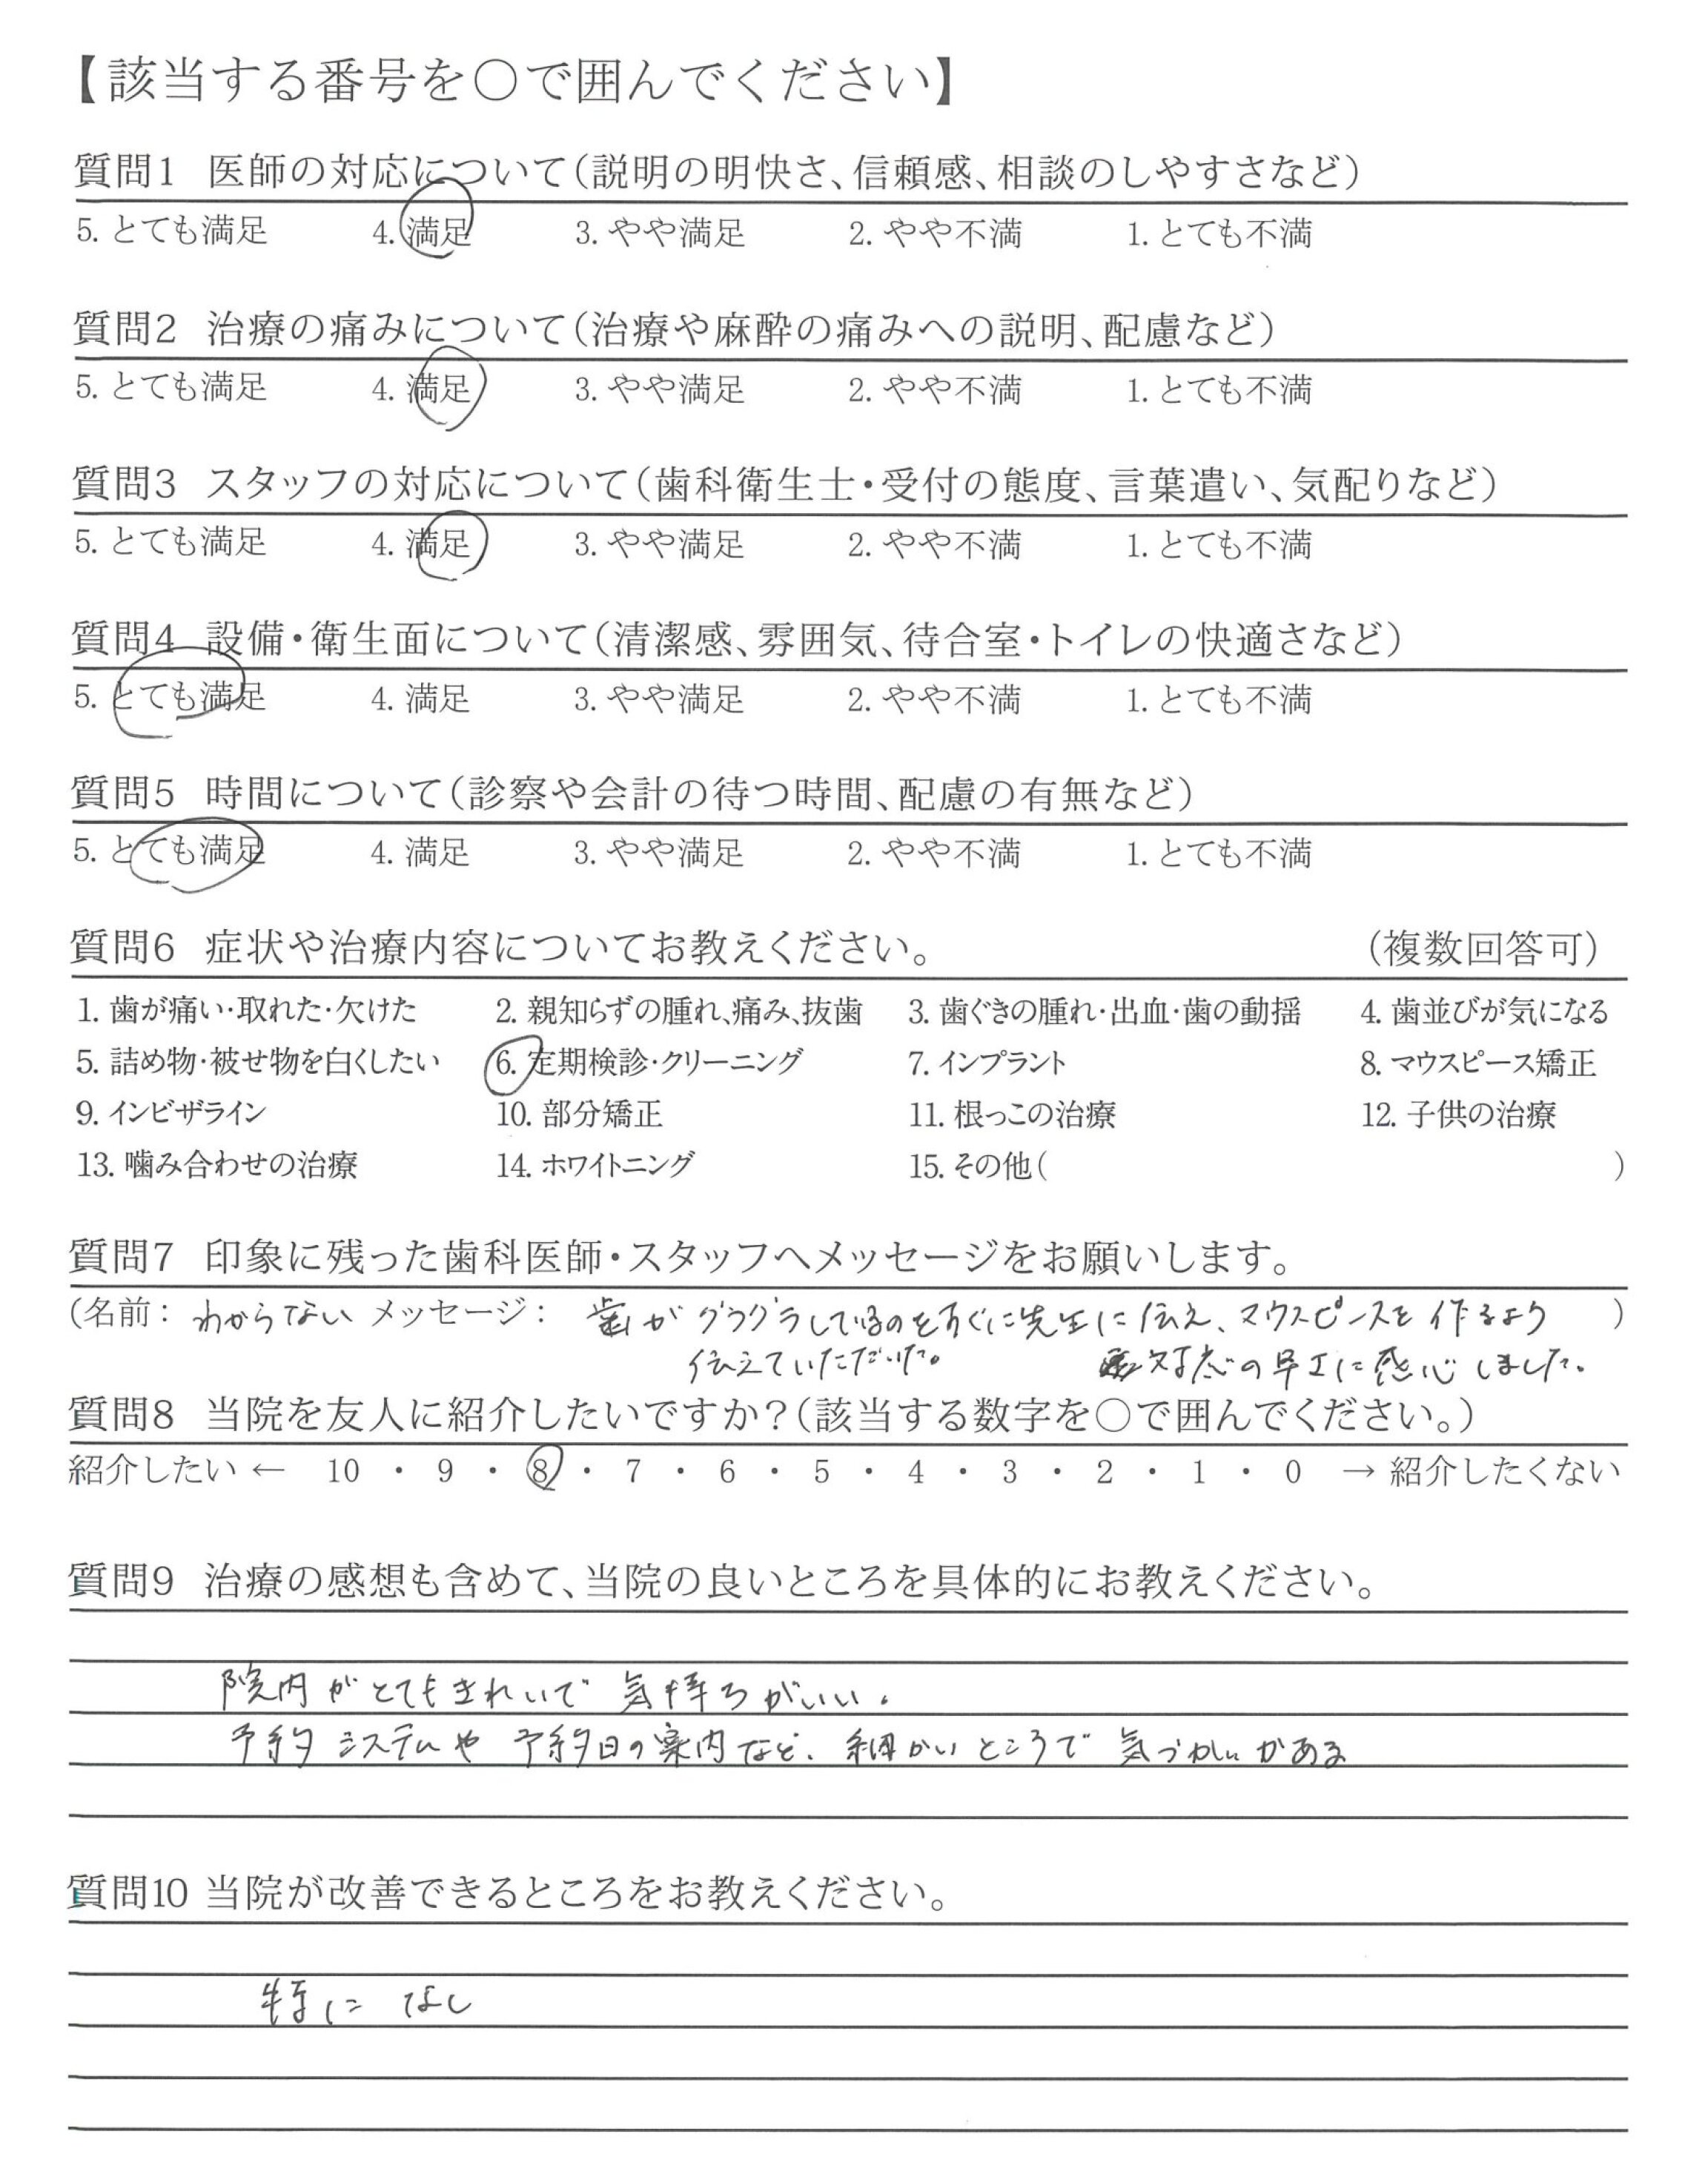 【該当する番号を○で囲んでください】
質問1 医師の対応について(説明の明快さ、信頼感、相談のしやすさなど)
5. とても満足 4. 満足 3. やや満足 2. やや不満 1. とても不満
質問2 治療の痛みについて(治療や麻酔の痛みへの説明、配慮など)
5. とても満足 4. 満足 3. やや満足 2. やや不満 1. とても不満
質問3 スタッフの対応について(歯科衛生士・受付の態度、言葉遣い、気配りなど)
5. とても満足 4. 満足 3. やや満足 2. やや不満 1. とても不満
質問4 設備・衛生面について(清潔感、雰囲気、待合室・トイレの快適さなど)
5. とても満足 4. 満足 3. やや満足 2. やや不満 1. とても不満
質問5 時間について(診察や会計の待つ時間、配慮の有無など)
5. とても満足 4. 満足 3. やや満足 2. やや不満 1. とても不満
質問6 症状や治療内容についてお教えください。 (複数回答可)
1. 歯が痛い・取れた・欠けた 2. 親知らずの腫れ、痛み、抜歯 3. 歯ぐきの腫れ・出血・歯の動揺 4. 歯並びが気になる
5. 詰め物・被せ物を白くしたい 6. 定期検診・クリーニング 7. インプラント 8. マウスピース矯正
9. インビザライン 10. 部分矯正 11. 根っこの治療 12. 子供の治療
13. 噛み合わせの治療 14. ホワイトニング 15. その他( )
質問7 印象に残った歯科医師・スタッフへメッセージをお願いします。
(名前: わからない メッセージ: 歯がグラグラしているのをすぐに先生に伝え、マウスピースを作るよう )
伝えていただいた。 対応の早さに感心しました。
質問8 当院を友人に紹介したいですか?(該当する数字を○で囲んでください。)
紹介したい ← 10 ・ 9 ・ 8 ・ 7 ・ 6 ・ 5 ・ 4 ・ 3 ・ 2 ・ 1 ・ 0 → 紹介したくない
質問9 治療の感想も含めて、当院の良いところを具体的にお教えください。
院内がとてもきれいで 気持ちがいい。
予約システムや 予約日の案内など、細かいところで 気づかいがある
質問10 当院が改善できるところをお教えください。
特に なし